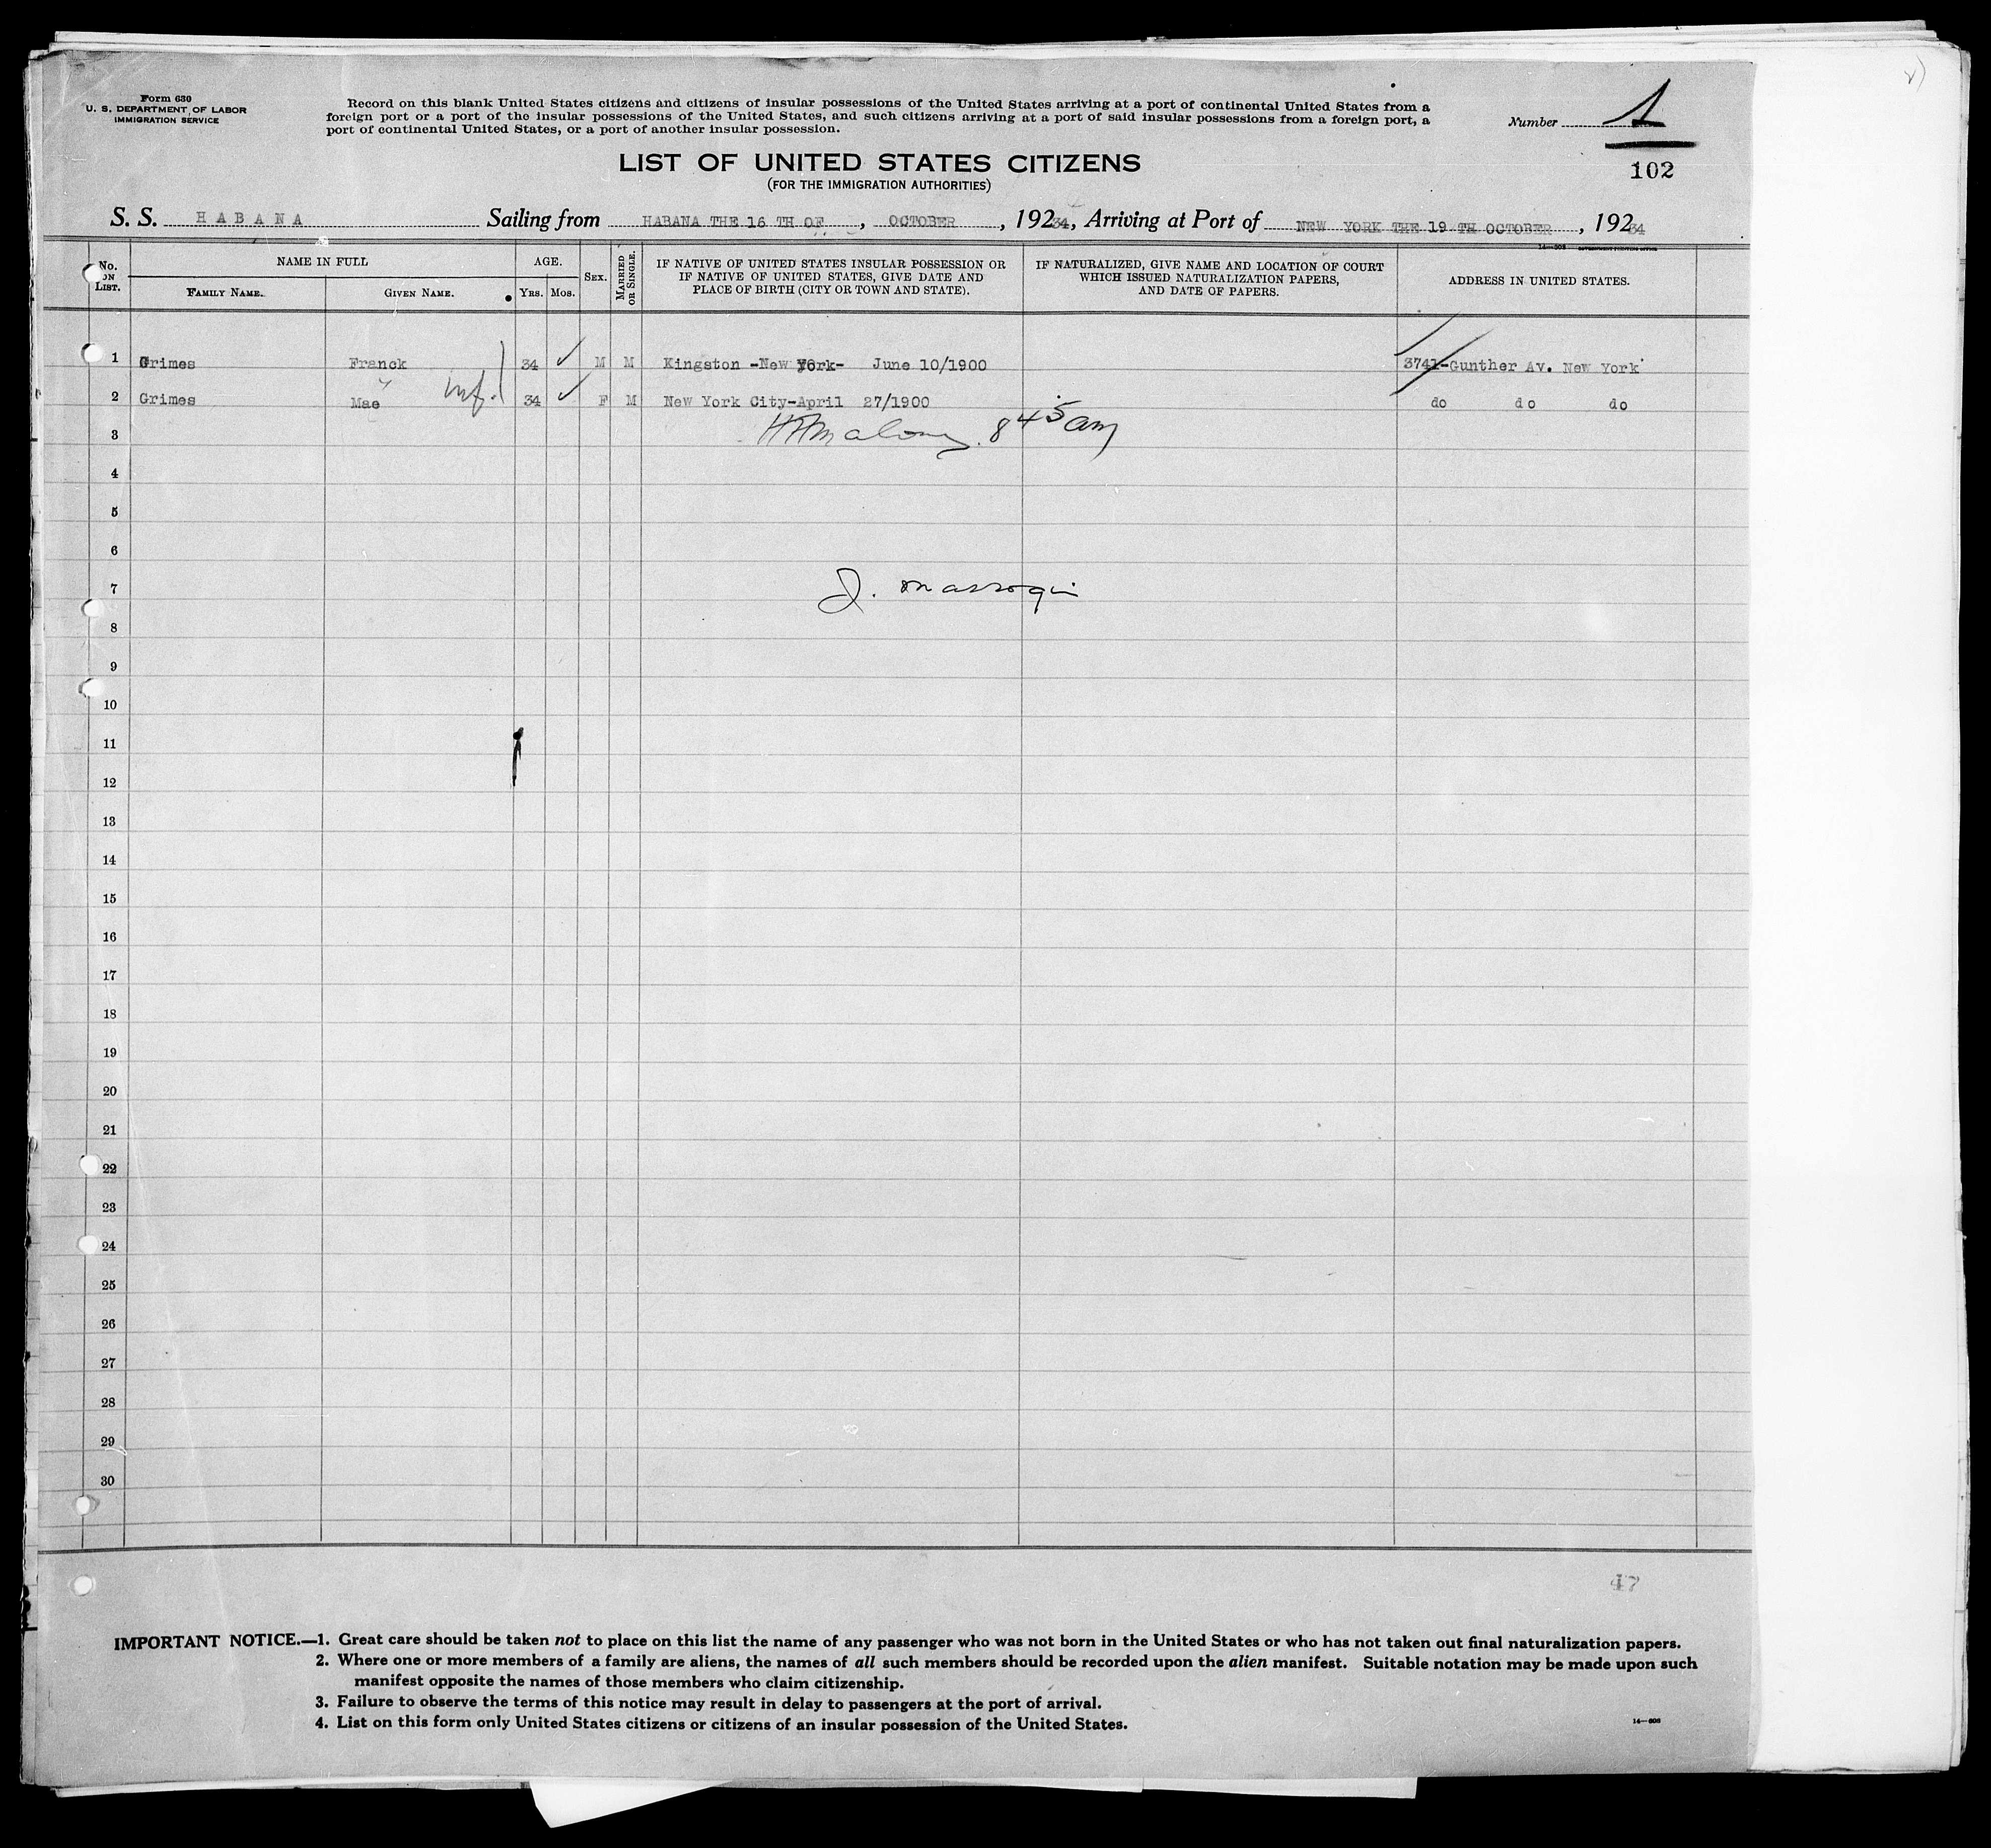 Form 630
U. S. DEPARTMENT OF LABOR
IMMIGRATION SERVICE
Record on this blank United States citizens and citizens of insular possessions of the United States arriving at a port of continental United States from a
foreign port or a port of the insular possessions of the United States, and such citizens arriving at a port of said insular possessions from a foreign port, a
port of continental United States, or a port of another insular possession.
Number 1
102
LIST OF UNITED STATES CITIZENS
(FOR THE IMMIGRATION AUTHORITIES)
S. S. HABANA Sailing from HABANA THE 16 TH OF, OCTOBER, 19234, Arriving at Port of NEW YORK THE 19 TH OCTOBER, 19234
No. ON LIST. NAME IN FULL FAMILY NAME. GIVEN NAME. AGE. Yrs. Mos. SEX. MARRIED OR SINGLE. IF NATIVE OF UNITED STATES INSULAR POSSESSION OR IF NATIVE OF UNITED STATES, GIVE DATE AND PLACE OF BIRTH (CITY OR TOWN AND STATE). IF NATURALIZED, GIVE NAME AND LOCATION OF COURT WHICH ISSUED NATURALIZATION PAPERS, AND DATE OF PAPERS. ADDRESS IN UNITED STATES.
1 Grimes Franck 34 M M Kingston -New York- June 10/1900 3741-Gunther Av. New York
2 Grimes Mae 34 F M New York City-April 27/1900 do do do
3 8 45 am
4
5
6
7
8
9
10
11
12
13
14
15
16
17
18
19
20
21
22
23
24
25
26
27
28
29
30
47
IMPORTANT NOTICE.—1. Great care should be taken not to place on this list the name of any passenger who was not born in the United States or who has not taken out final naturalization papers.
2. Where one or more members of a family are aliens, the names of all such members should be recorded upon the alien manifest. Suitable notation may be made upon such
manifest opposite the names of those members who claim citizenship.
3. Failure to observe the terms of this notice may result in delay to passengers at the port of arrival.
4. List on this form only United States citizens or citizens of an insular possession of the United States.